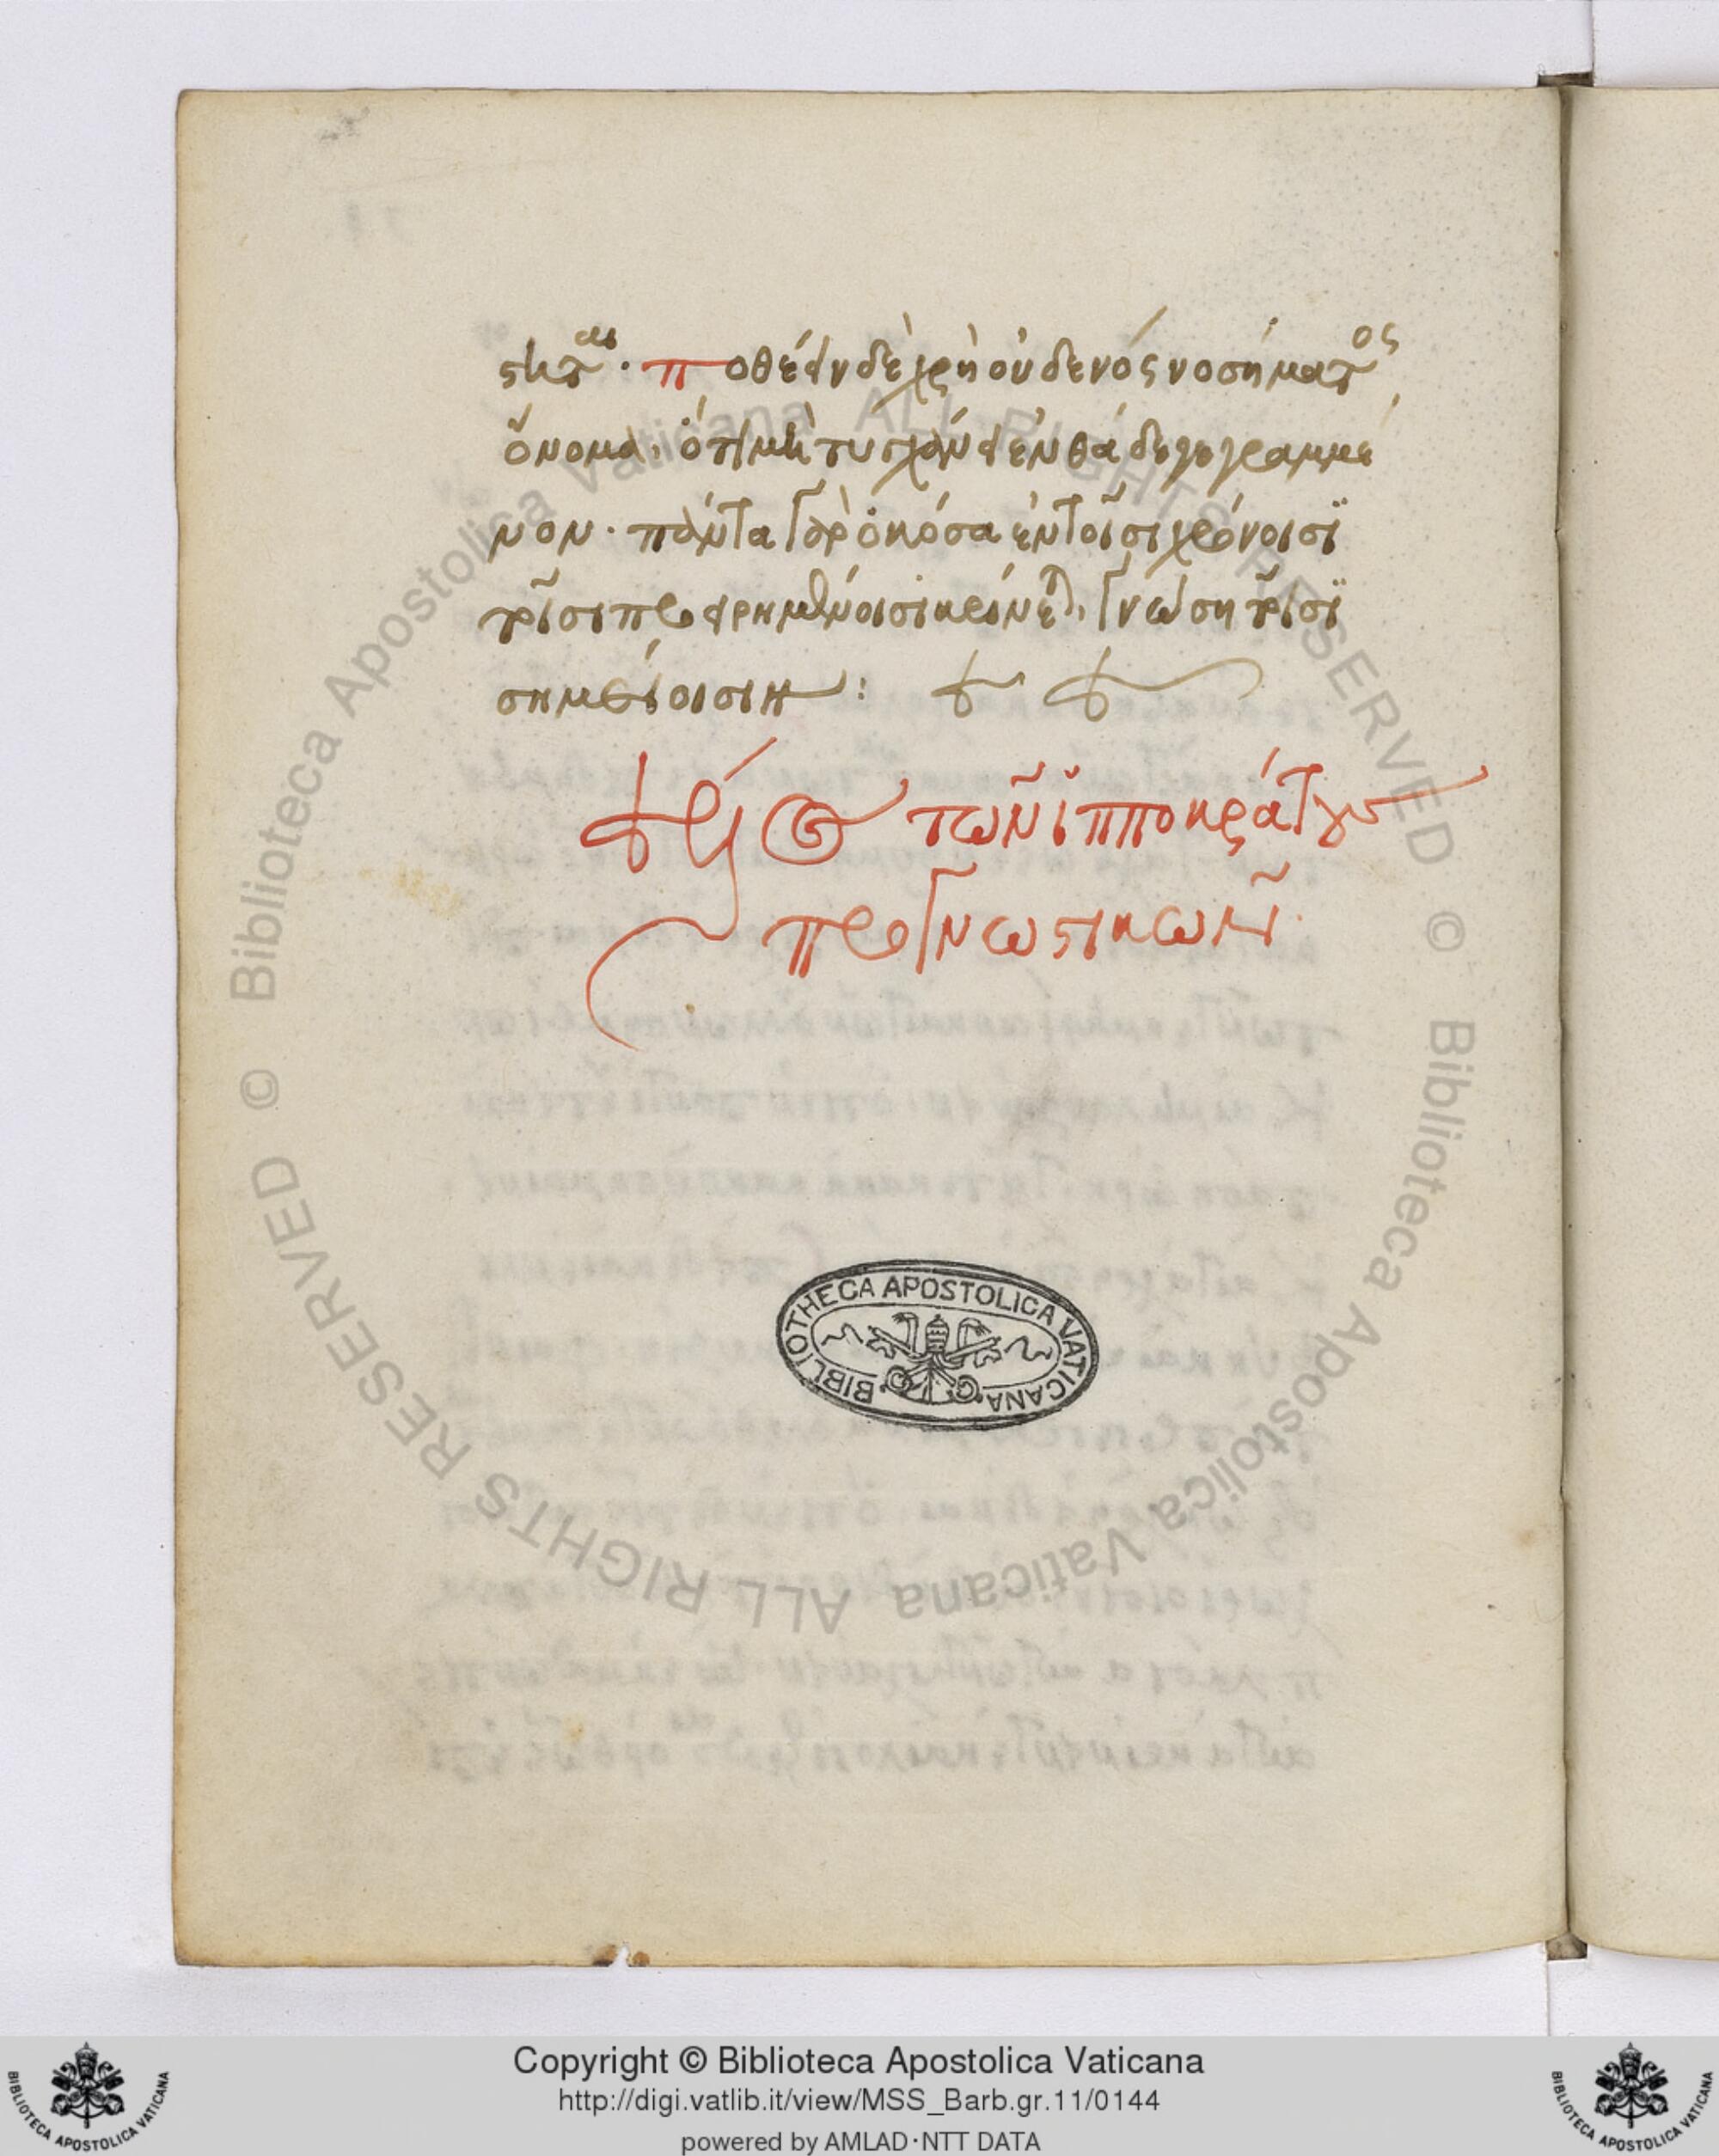 στηται· ποθέειν δὲ χρὴ οὐδενός νοσήματος
ὄνομα, ὅτι μὴ τυγχάνει ἐνθάδε γεγραμμέ
νον· πάντα γὰρ ὁκόσα ἐν τοῖσι χρόνοισϊ
τοῖσι προειρημένοισι κρίνεται, γνώση τοῖσϊ
σημείοισιν:
τέλος τῶν ἱπποκράτους
προγνωστικῶν
BIBLIOTHECA APOSTOLICA VATICANA
Biblioteca Apostolica Vaticana ALL RIGHTS RESERVED ©
Biblioteca Apostolica Vaticana ALL RIGHTS RESERVED ©
Copyright © Biblioteca Apostolica Vaticana
http://digi.vatlib.it/view/MSS_Barb.gr.11/0144
powered by AMLAD·NTT DATA
BIBLIOTECA APOSTOLICA VATICANA
BIBLIOTECA APOSTOLICA VATICANA